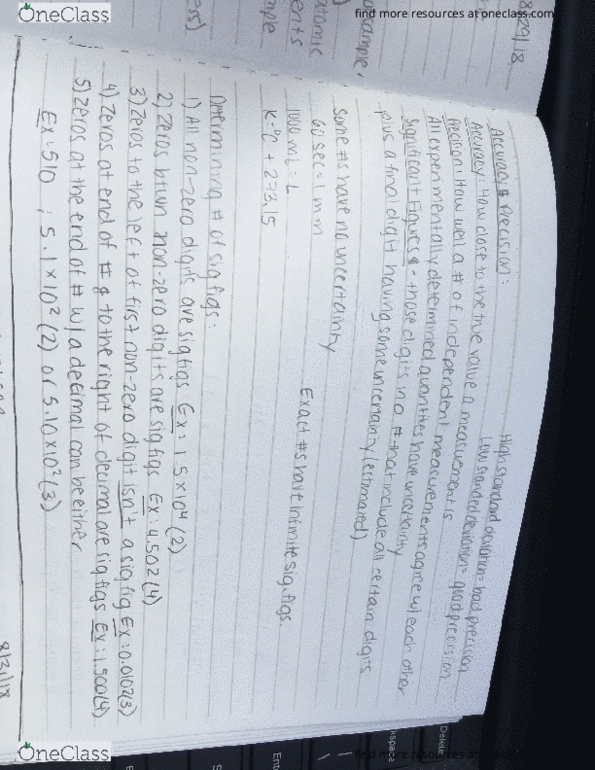 OneClass
find more resources at oneclass.com
8/29/18
Accuracy & Precision:
High standard deviation = bad precision
Accuracy: How close to the true value a measurement is
Low standard deviation = good precision
Precision: How well a # of independent measurements agree w/ each other
All experimentally determined quantities have uncertainty
Significant Figures - those digits in a # that include all certain digits
plus a final digit having some uncertainty (estimated)
Some #s have no uncertainty
60 sec = 1 min
Exact #s have infinite sig. figs.
1000 mL = L
K = °C + 273.15
Determining # of sig figs:
1) All non-zero digits are sig figs Ex: 1.5x10⁴ (2)
2) Zeros btwn non-zero digits are sig figs Ex: 4.502 (4)
3) Zeros to the left of first non-zero digit isn't a sig fig Ex: 0.0102 (3)
4) Zeros at end of # & to the right of decimal are sig figs Ex: 1.500 (4)
5) Zeros at the end of # w/ a decimal can be either
Ex: 510 ; 5.1x10² (2) or 5.10x10² (3)
8/31/18
atomic
ents
mple
Delete
Ent
OneClass
find more resources at oneclass.com